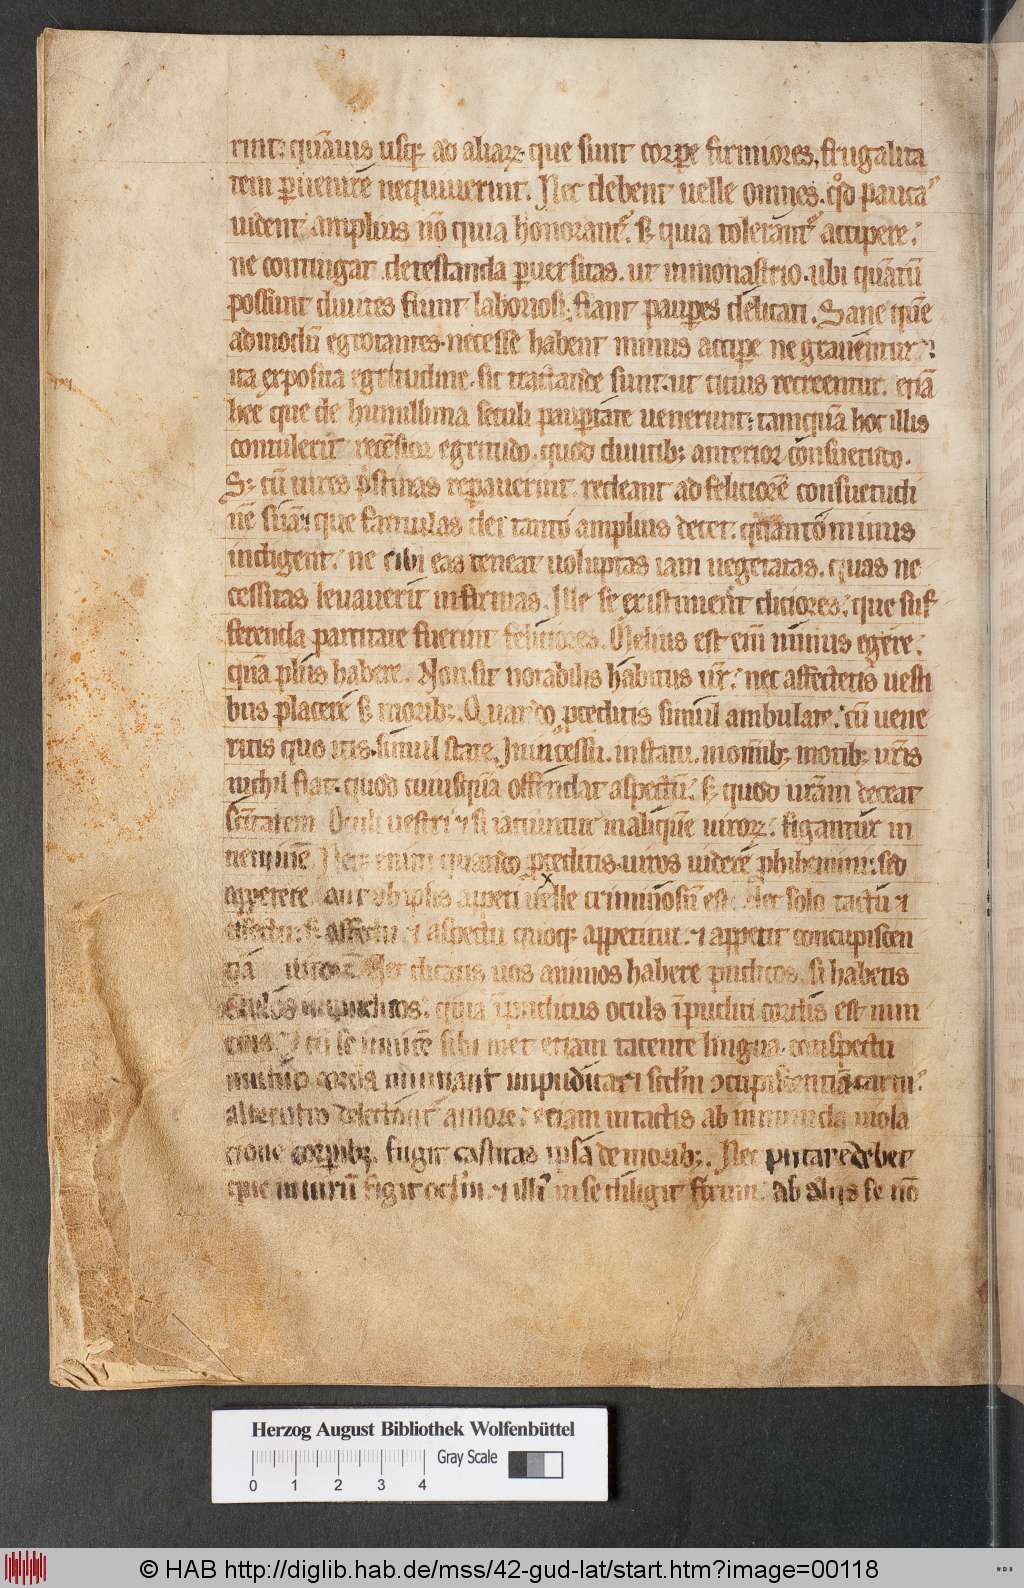 rint: quāuis usq; ad aliarꝝ que sunt corꝑe firmiores, frugalita
tem ꝑuenire nequiuerint. Nec debent uelle omnes. qd pauca
uident amplius nō quia honorant'. sꝫ quia tolerant' accipere.
ne contingat detestanda ꝑuersitas. ut in monastrio. ubi quātū
possunt diuites fiunt laboriosi, fiant pauꝑes delicati. Sane quē
admodū egrotantes. necesse habent minus accipe ne grauentur.
ita ex posita egritudine. sic tractande sunt. ut citius recreentur. etiā
hee que de humillima seculi pauꝑtate uenerunt: tamquā hoc illis
contulerit recēsior egritudo. quod diuitib; anterior consuetudo.
Sꝫ cū uires pstinas repauerint. redeant ad feliciorē consuetudi
nē suā: que famulas dei tanto amplius decet. quanto minus
indigent. ne cibi eas teneat uoluptas iam uegetatas. quas ne
cessitas leuauerit infirmas. Ille se existiment diciores. que suf
ferenda paritate fuerint feliciores. Melius est eni minus egere.
quā plus habere. Non sit notabilis habitus ur̄. nec affectetis uesti
bus placere sꝫ morib;. Quando ꝓceditis simul ambulate. cū uene
ritis quo itis. simul state. In incessu. in statu. in omib; motib; ur̄is
nichil fiat. quod cuiusquā offendat aspectū. sꝫ quod urām deceat
sc̄itatem. Oculi uestri ⁊ si iaciuntur in aliquē uirorꝝ. figantur in
neminē. Nec enim quando ꝓceditis. uiros uidere ꝓhibemini: sed
appetere. aut ab ipsis appeti uelle criminosū est. Nec solo tactu ⁊
affectu. sꝫ affectu. ⁊ aspectu quoq; appetitur. ⁊ appetit concupiscen
Nec dicatis uos animos habere pudicos. si habetis
oculos impudicos. quia īpudicus oculs īpudici cordis est nun
cius. Et cū se inuicē sibi met etiam tacente lingua. conspectu
mutuo corda nuntiant impudica. ⁊ scd̄m ꝯcupiscentiā carnis
alterutro delectant' amore. etiam intactis ab inmunda uiola
cione corꝑib;. fugit castitas ipsa de morib;. Nec putare debet
que in uirū figit oclm. ⁊ illi' in se diligit fixum. ab aliis se nō
Herzog August Bibliothek Wolfenbüttel
Gray Scale
0 1 2 3 4
© HAB http://diglib.hab.de/mss/42-gud-lat/start.htm?image=00118